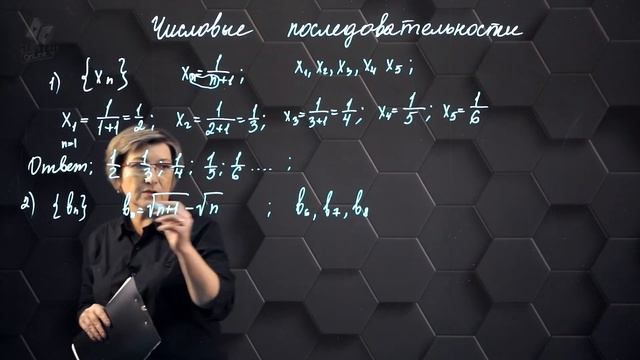 Числовые последовательности
1) {xₙ} xₙ = 1/(n+1); x₁, x₂, x₃, x₄ x₅;
x₁ = 1/(1+1) = 1/2; x₂ = 1/(2+1) = 1/3; x₃ = 1/(3+1) = 1/4; x₄ = 1/5; x₅ = 1/6
n=1
Ответ; 1/2; 1/3; 1/4; 1/5; 1/6 .... ;
2) {bₙ} bₙ = √(n+1) − √n ; b₆, b₇, b₈